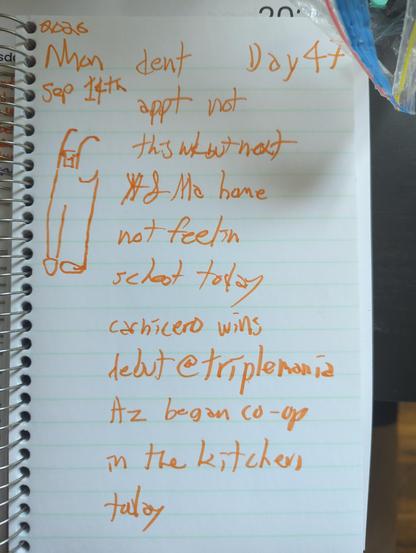 2026
Mon dent Day 47
Sep 14th appt not
this wk but next
Az & Ma home
not feelin
school today
carnicero wins
debut @ triplemania
Az began co-op
in the kitchen
today